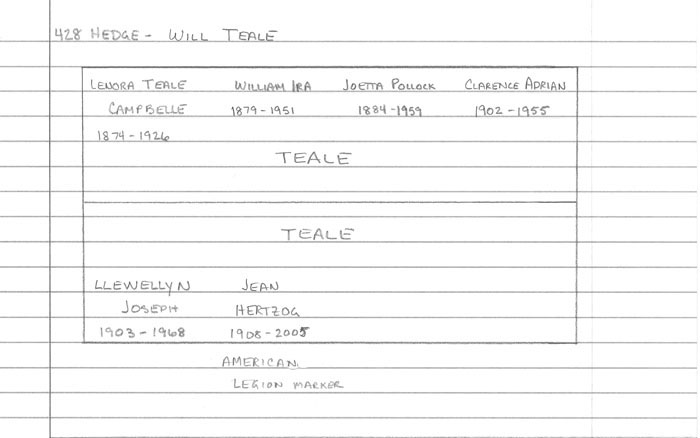 428 HEDGE - WILL TEALE
LENORA TEALE WILLIAM IRA JOETTA POLLOCK CLARENCE ADRIAN
CAMPBELLE 1879-1951 1884-1959 1902-1955
1874-1926
TEALE
TEALE
LLEWELLYN JEAN
JOSEPH HERTZOG
1903-1968 1908-2005
AMERICAN
LEGION MARKER